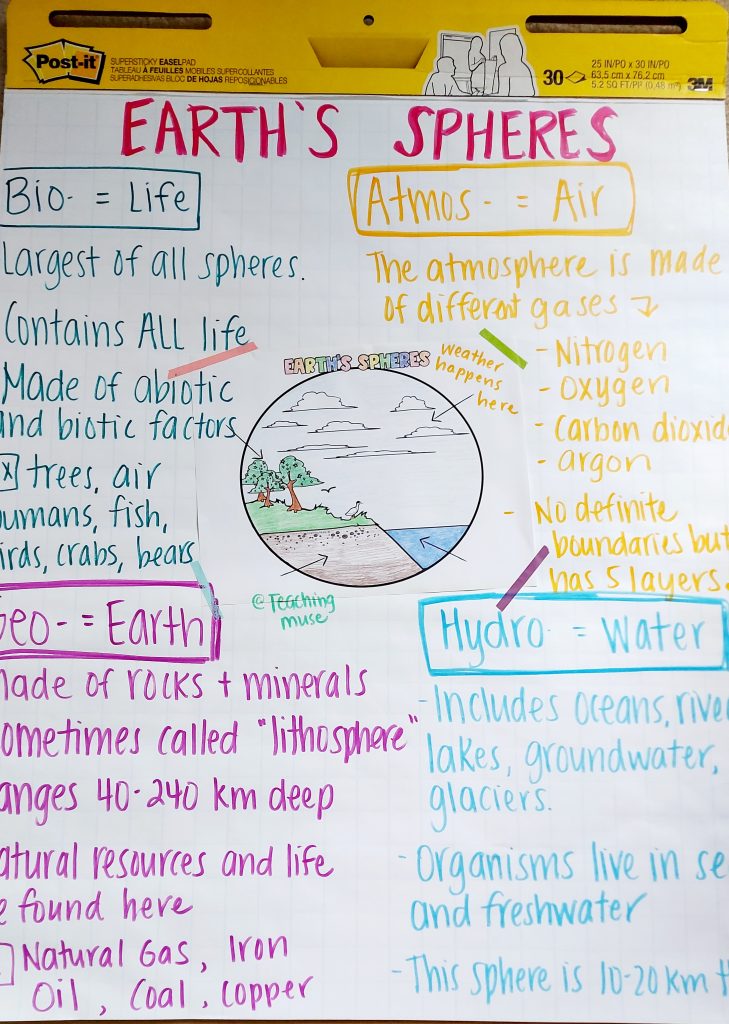 Post-it
SUPERSTICKY EASELPAD
TABLEAU À FEUILLES MOBILES SUPERCOLLANTES
SUPERADHESIVAS BLOC DE HOJAS REPOSICIONABLES
30
25 IN/PO x 30 IN/PO
63,5 cm x 76,2 cm
5.2 SQ FT/PI² (0,48 m²)
3M
EARTH'S SPHERES
Bio- = Life
Largest of all spheres.
Contains ALL life
Made of abiotic
and biotic factors
trees, air
humans, fish,
birds, crabs, bears
Atmos- = Air
The atmosphere is made
of different gases
- Nitrogen
- Oxygen
- Carbon dioxid
- argon
- No definite
boundaries but
has 5 layers.
EARTH'S SPHERES
Weather
happens
here
@Teaching
muse
Geo- = Earth
made of rocks + minerals
ometimes called "lithosphere"
anges 40-240 km deep
atural resources and life
e found here
Natural Gas, Iron
Oil, Coal, Copper
Hydro- = Water
- Includes oceans, rive
lakes, groundwater,
glaciers.
- Organisms live in se
and freshwater
- This sphere is 10-20 km t